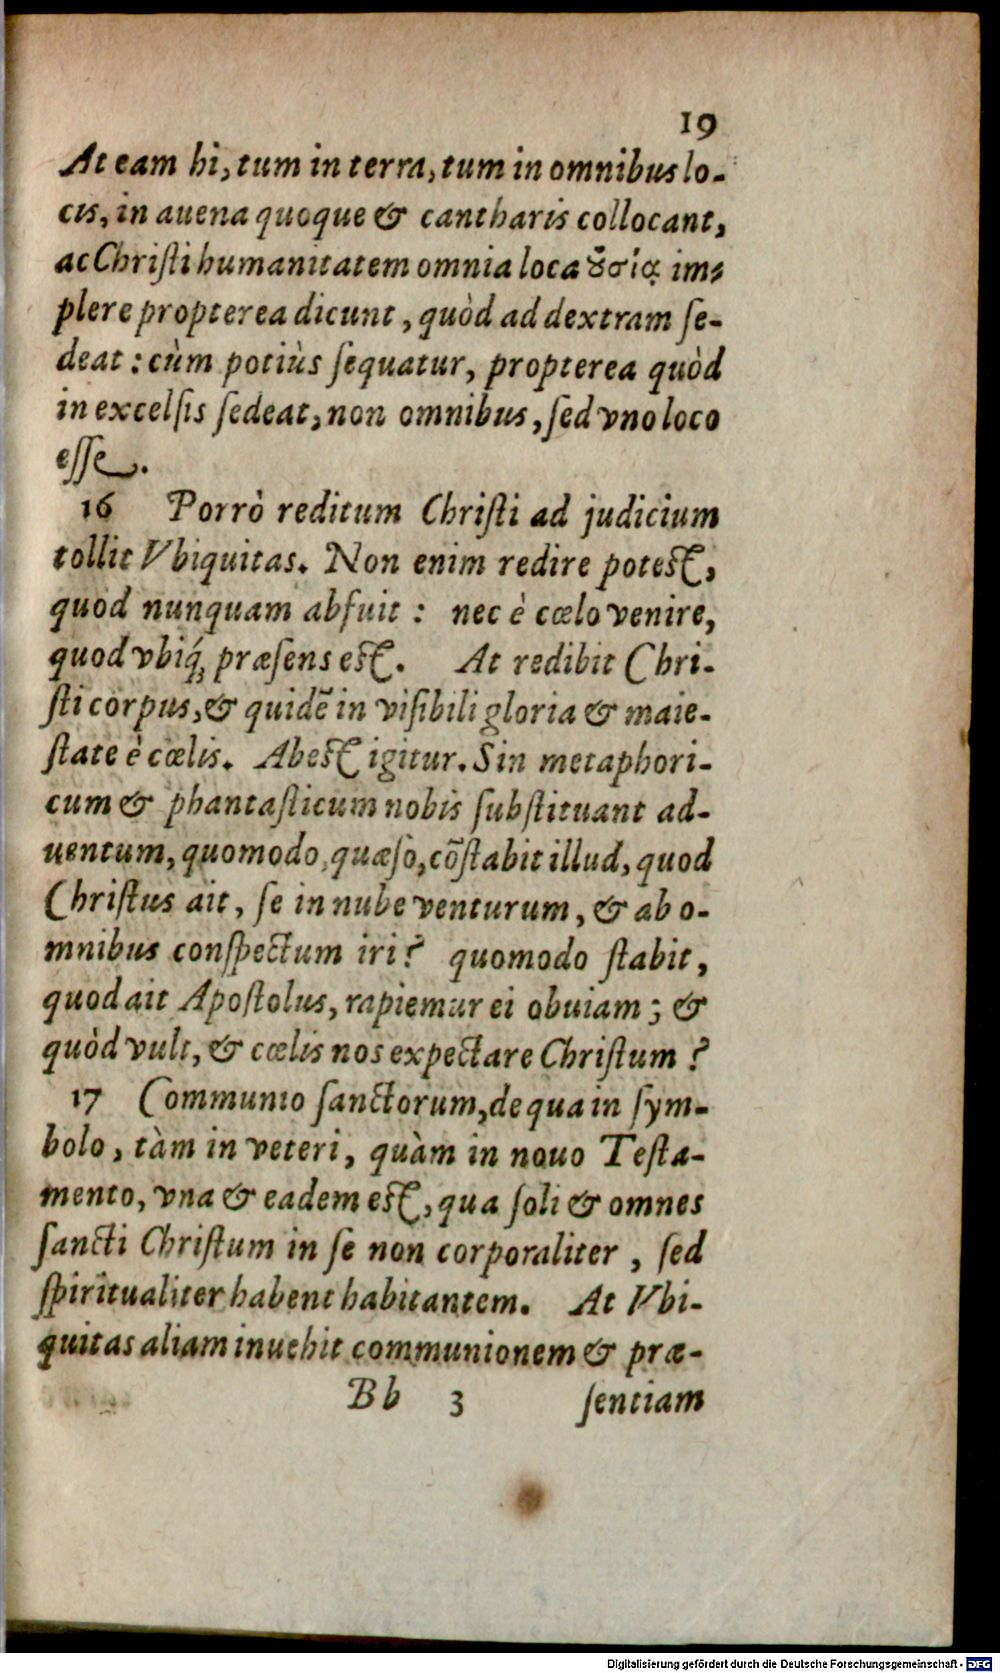 19
At eam hi, tum in terra, tum in omnibus lo-
cis, in auena quoque & cantharis collocant,
ac Christi humanitatem omnia loca ȣ̓σίᾳ im-
plere propterea dicunt, quòd ad dextram se-
deat: cùm potiùs sequatur, propterea quòd
in excelsis sedeat, non omnibus, sed vno loco
esse.
16 Porrò reditum Christi ad judicium
tollit Vbiquitas. Non enim redire potest,
quod nunquam absuit: nec è cœlo venire,
quod vbiq́; præsens est. At redibit Chri-
sti corpus, & quidē in visibili gloria & maie-
state è cœlis. Abest igitur. Sin metaphori-
cum & phantasticum nobis substituant ad-
uentum, quomodo, quæso, cōstabit illud, quod
Christus ait, se in nube venturum, & ab o-
mnibus conspectum iri? quomodo stabit,
quod ait Apostolus, rapiemur ei obuiam; &
quòd vult, & cœlis nos expectare Christum?
17 Communio sanctorum, de qua in sym-
bolo, tàm in veteri, quàm in nouo Testa-
mento, vna & eadem est, qua soli & omnes
sancti Christum in se non corporaliter, sed
spiritualiter habent habitantem. At Vbi-
quitas aliam inuehit communionem & præ-
Bb 3 sentiam
Digitalisierung gefördert durch die Deutsche Forschungsgemeinschaft - DFG